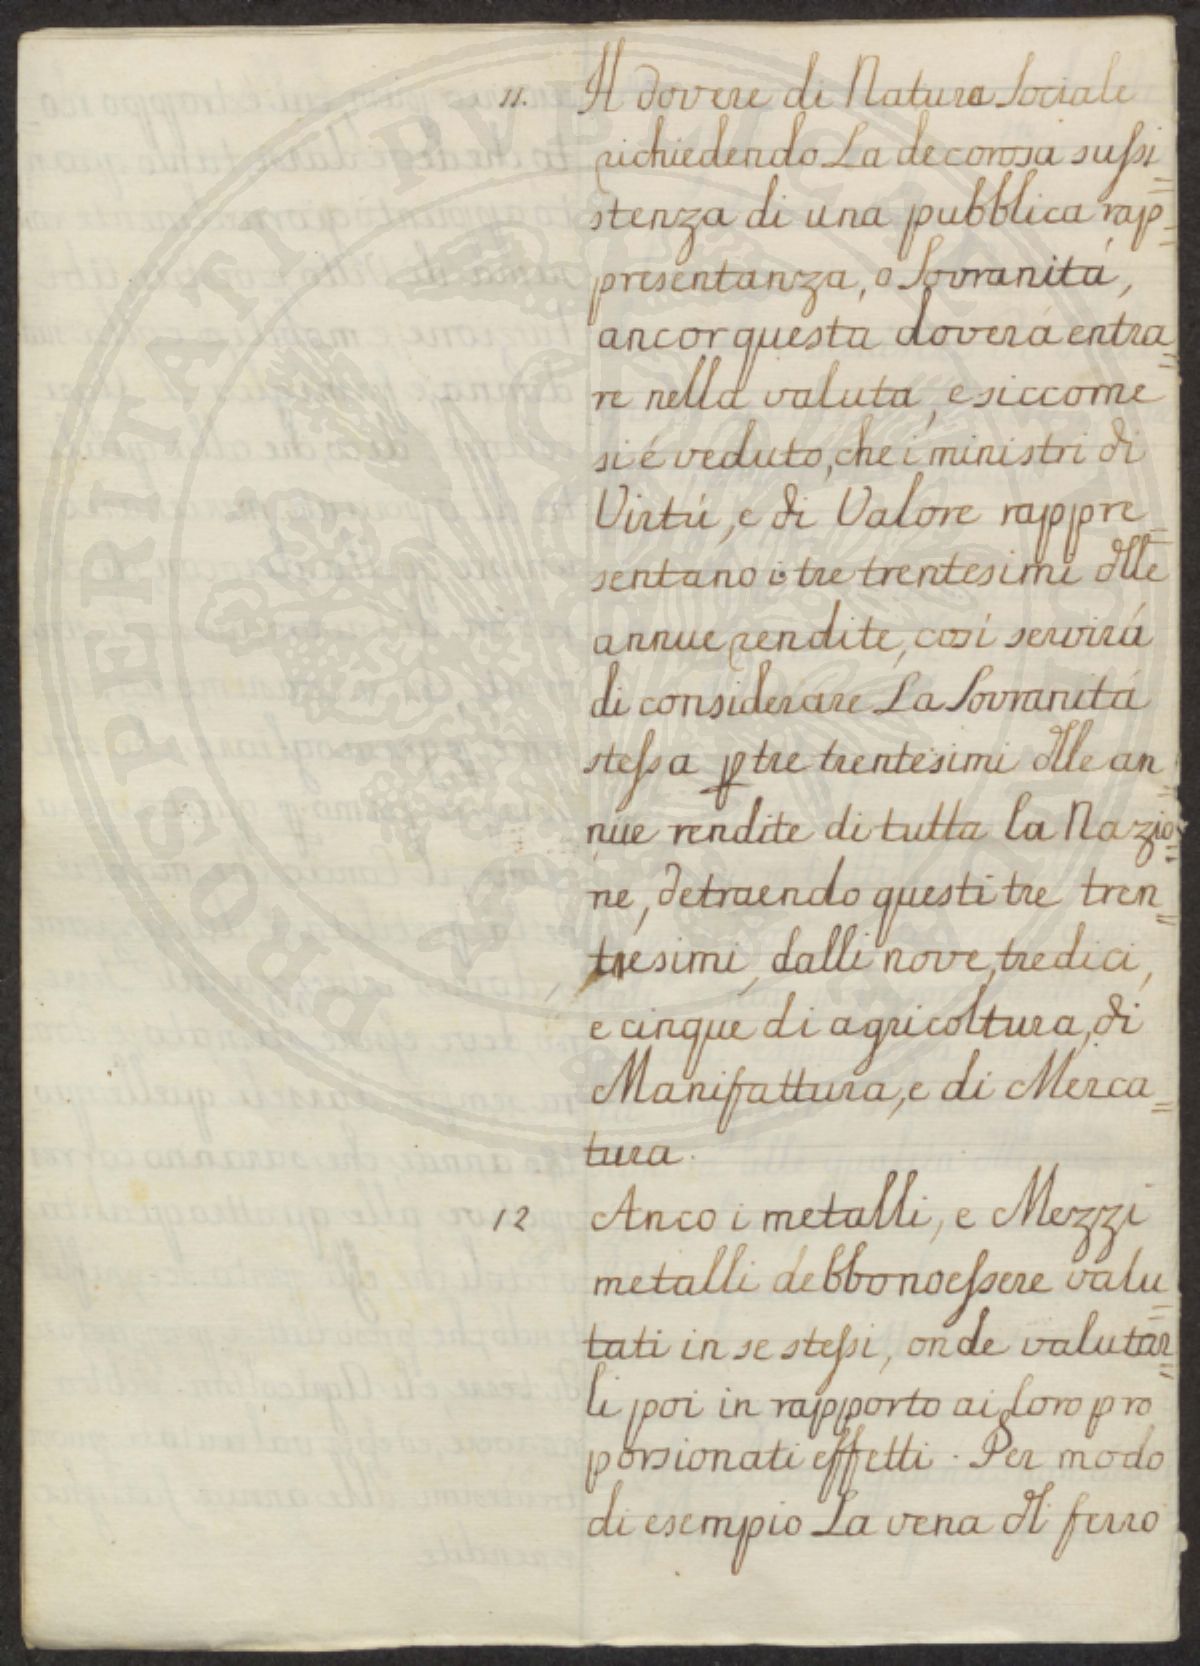 11. Il dovere di Natura Sociale
richiedendo La decorosa sussi=
stenza di una pubblica rap=
presentanza, o Sovranitá,
ancor questa doverá entra=
re nella valuta, e siccome
si é veduto, che i ministri di
Virtú, e di Valore rappre=
sentano i tre trentesimi dlle
annue rendite, cosí servirá
di considerare La Sovranitá
stessa p tre trentesimi dlle an=
nue rendite di tutta la Nazio=
ne, detraendo questi tre tren=
tesimi, dalli nove, tredici,
e cinque di agricoltura, di
Manifattura, e di Merca=
tura.
12 Anco i metalli, e Mezzi
metalli debbono essere valu=
tati in se stessi, onde valutar=
li poi in rapporto ai loro pro
porsionati effetti. Per modo
di esempio La vena dl ferro
PROSPERITATI PVBLICAE